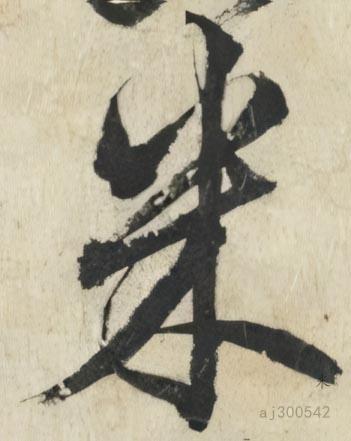 米
米
aj300542